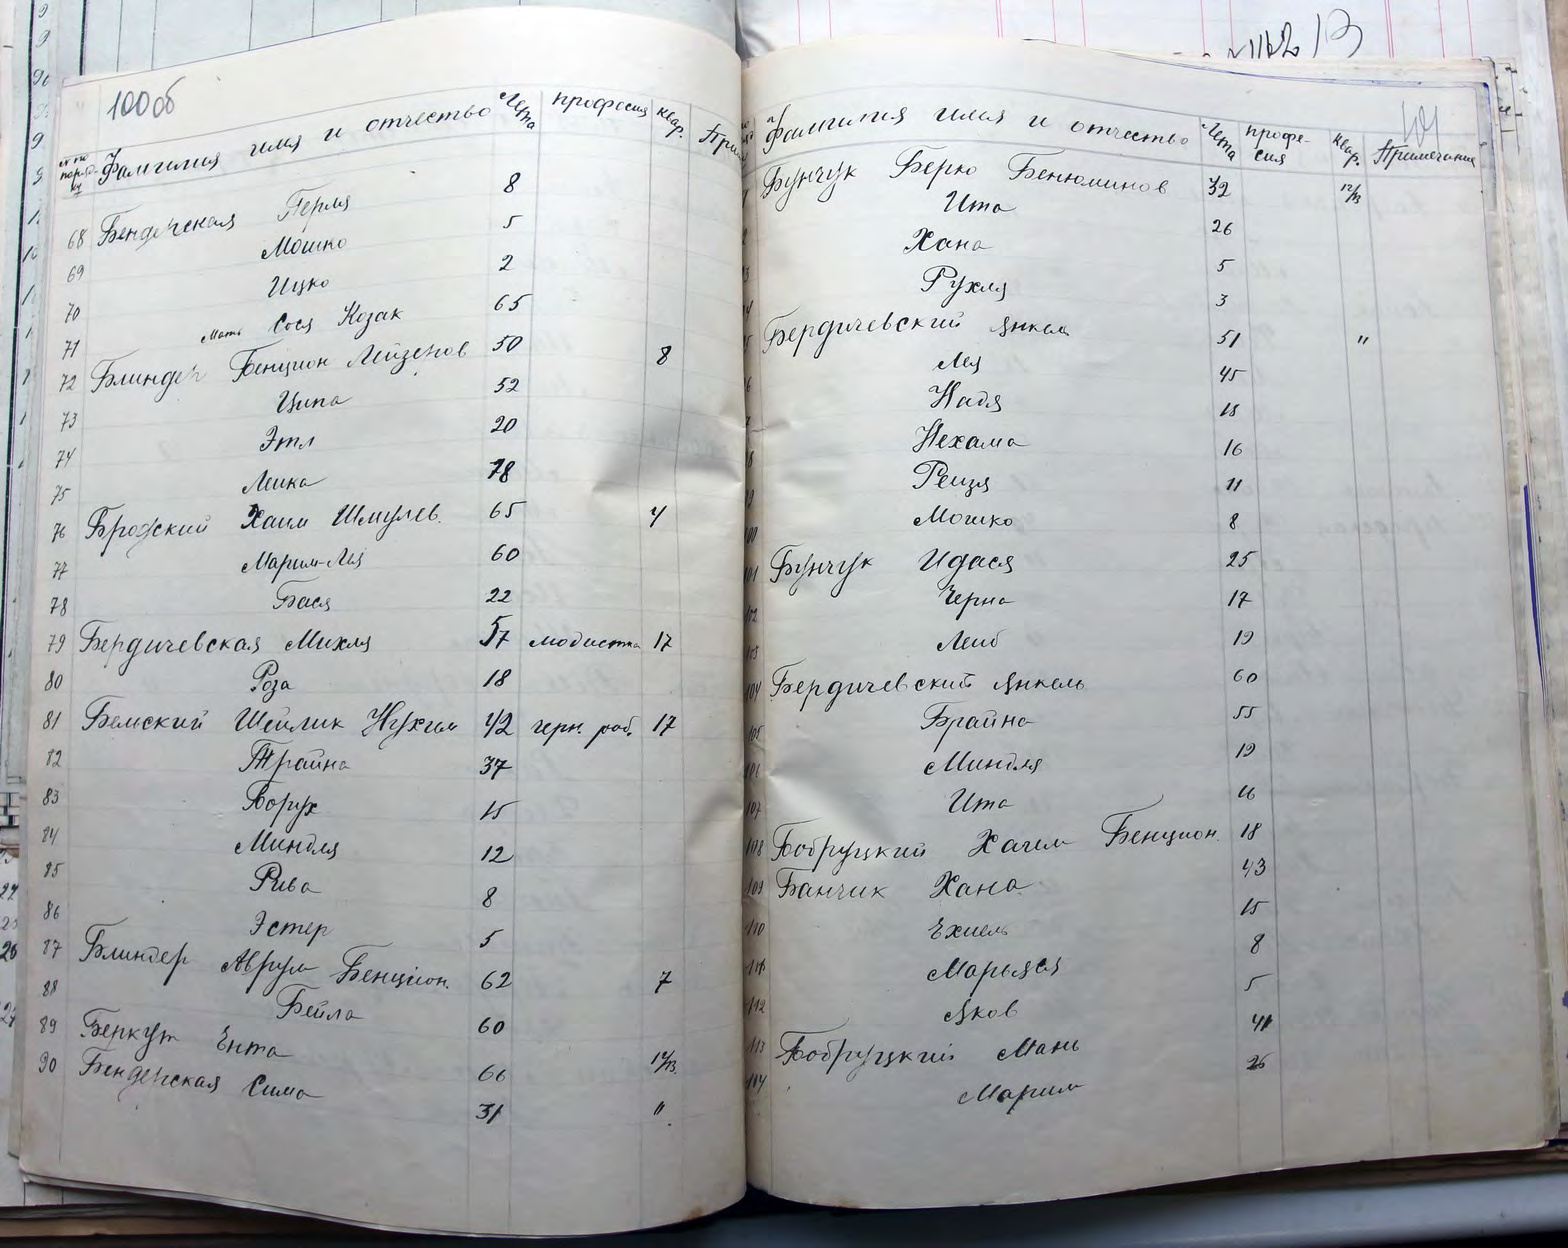 100об
№ по поряд-ку Фамилия имя и отчество Лета професия квар.
68 Бендерская Перля 8
69 Мошко 5
70 Ицко 2
71 Мать Сося Козак 65
72 Блиндер Бенцион Лейзеров 50 8
73 Ципа 52
74 Этл 20
75 Лика 18
76 Брожский Хаим Шмулев. 65 4
77 Марим-Лея 60
78 Бася 22
79 Бердичевская Михля 57 модистка 17
80 Роза 18
81 Бемский Шейлик Нухим 42 черн. раб. 17
82 Трайна 37
83 Борух 15
84 Миндля 12
85 Рива 8
86 Эстер 5
87 Блиндер Аврум Бенцион. 62 7
88 Бейла 60
89 Беркут Ента 66 12/13
90 Бендерская Сима 31 "
101
Фамилия имя и отчество Лета профе-сия квар. Примечание
Бунчук Берко Бенюминов 42 12/13
Ита 26
Хана 5
Рухля 3
Бердичевский Янкель 51 "
Лея 45
Надя 18
Нехама 16
Рейзя 11
Мошко 8
101 Бунчук Идася 25
102 Черна 17
103 Лейб 19
104 Бердичевский Янкель 60
105 Брайна 55
106 Миндля 19
107 Ита 16
108 Бобруцкий Хаим Бенцион. 18
109 Банчик Хана 43
110 Ехиель 15
111 Марьяся 8
112 Яков 5
113 Бобруцкий Мань 41
114 Марим 26